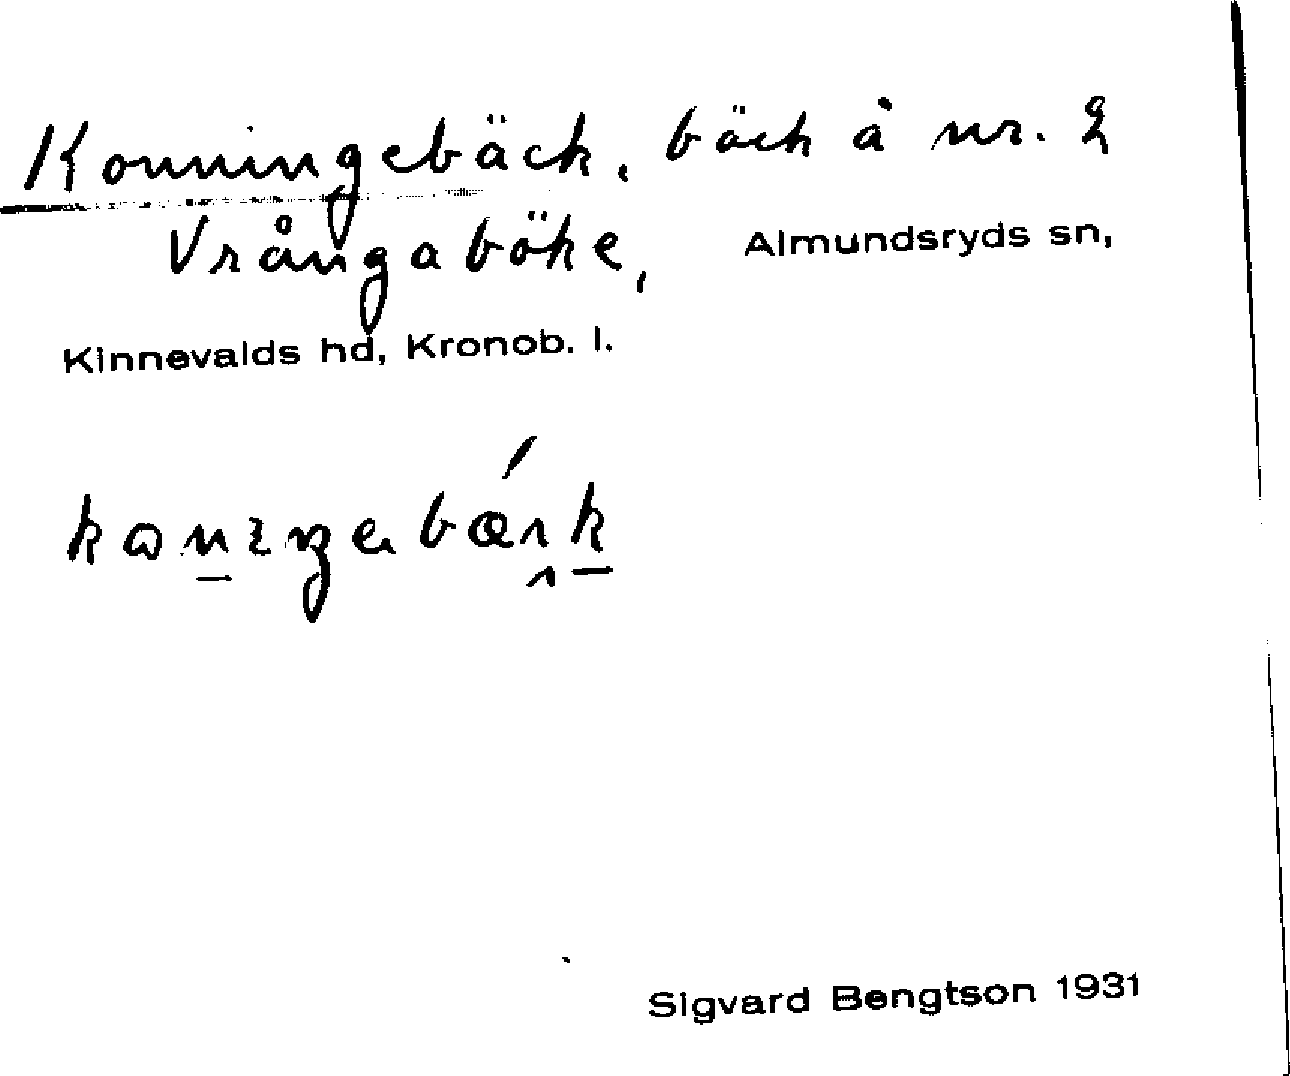 Konningebäck, bäck å nr. 2
Vrångaböke, Almundsryds sn,
Kinnevalds hd, Kronob. l.
Sigvard Bengtson 1931